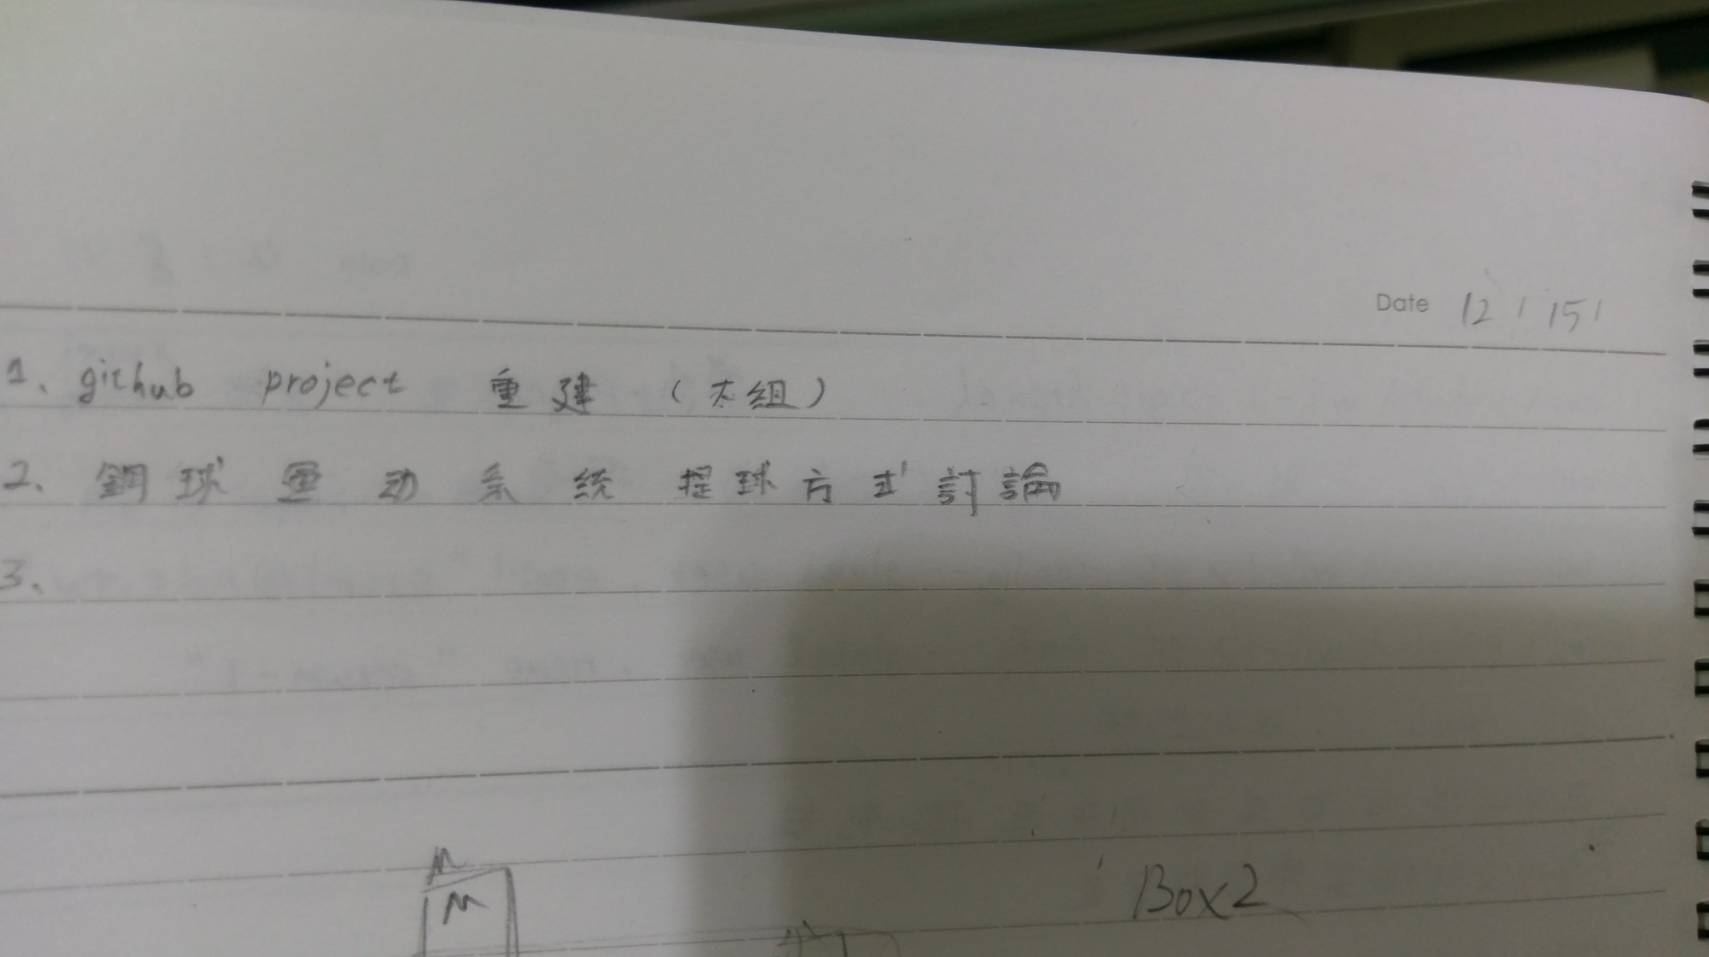 Date 12 / 15 /
1、github project 重建 (大組)
2、鋼球運动系統提球方式討論
3、
M
M
Box2